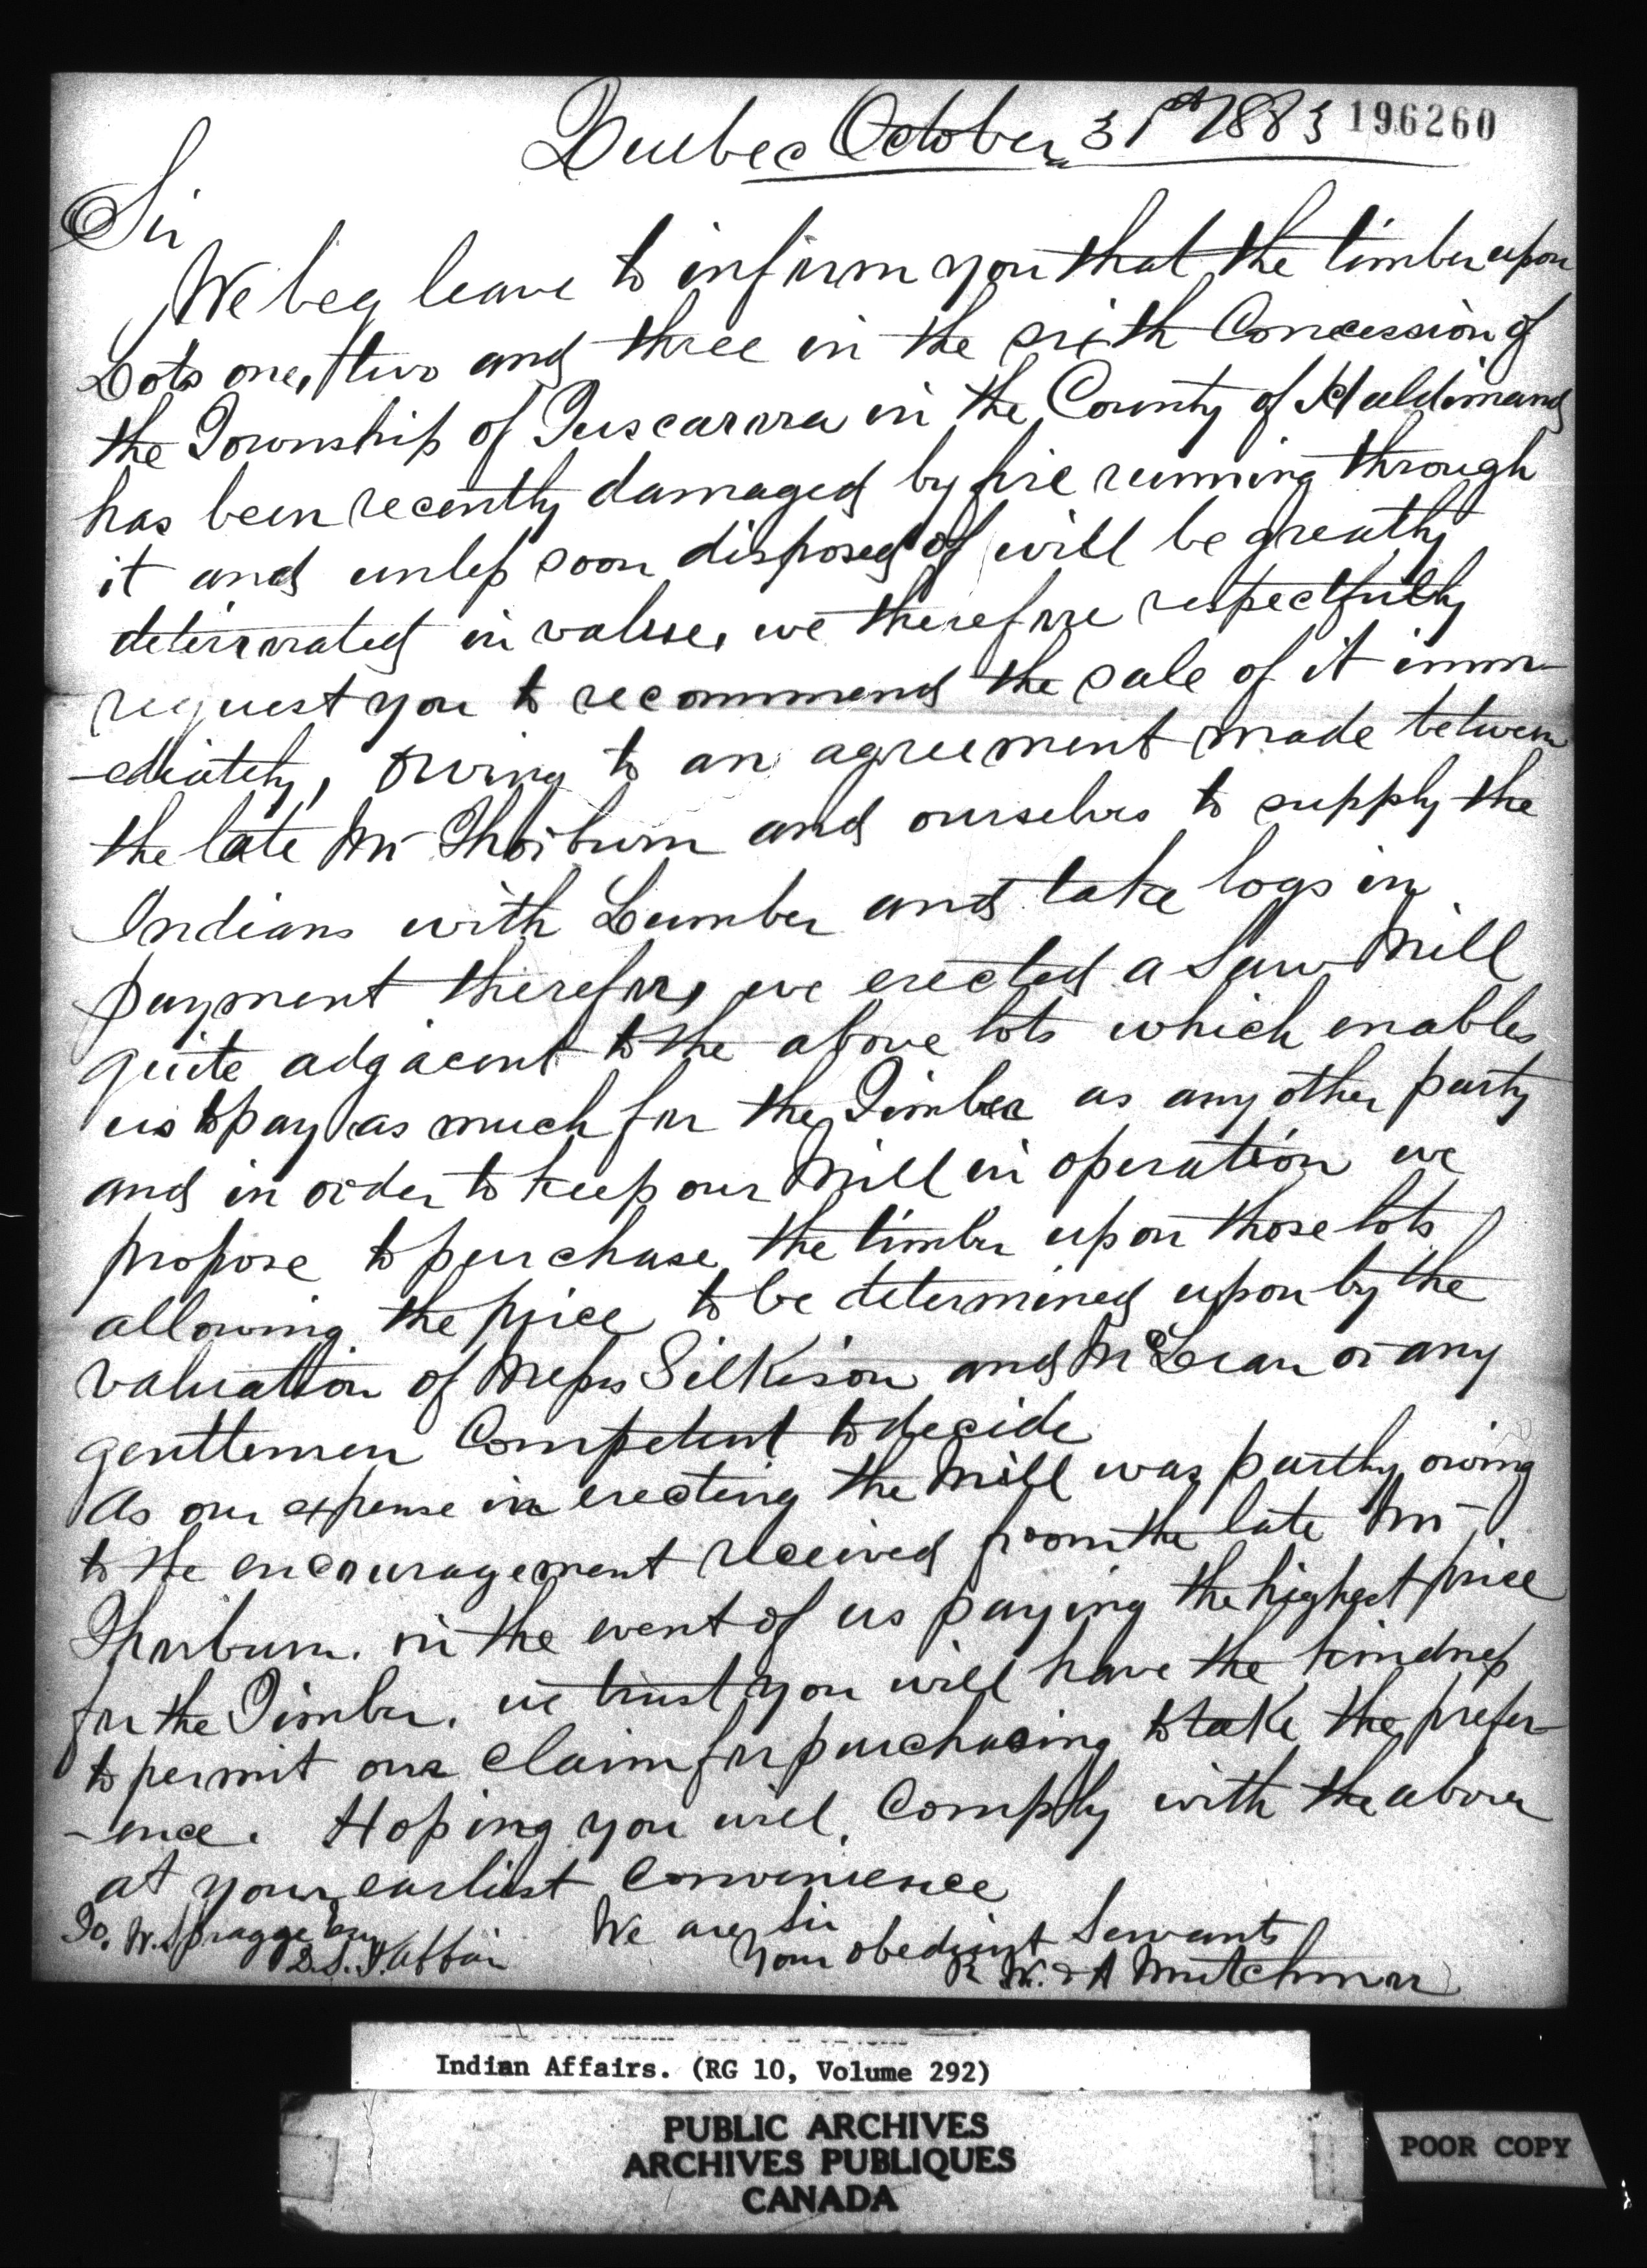 Quebec October 31st 1883 196260
Sir
We beg leave to inform you that the timber upon
Lots one, two and three in the sixth Concession of
the Township of Tuscarora in the County of Haldimand
has been recently damaged by fire running through
it and unless soon disposed of will be greatly
deteriorated in value, we therefore respectfully
request you to recommend the sale of it imm-
-ediately, owing to an agreement made between
the late Mr Thorburn and ourselves to supply the
Indians with Lumber and take logs in
payment therefor, we erected a Saw Mill
quite adjacent to the above lots which enables
us to pay as much for the Timber as any other party
and in order to keep our Mill in operation we
propose to purchase the timber upon those lots
allowing the price to be determined upon by the
valuation of Messrs Silkison and McLean or any
gentlemen Competent to decide
As our expense in erecting the Mill was partly owing
to the encouragement received from the late Mr
Thorburn. in the event of us paying the highest price
for the Timber. we trust you will have the kindness
to permit our claim for purchasing to take the prefer-
-ence. Hoping you will Comply with the above
at your earliest Convenience
We are Sir
To. W. Spragge Esqr
Your obedient Servants
D.S.I. Affair
R W. & A Mutchmor
Indian Affairs. (RG 10, Volume 292)
PUBLIC ARCHIVES
ARCHIVES PUBLIQUES
CANADA
POOR COPY